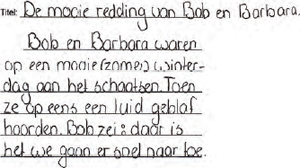 Titel: De mooie redding van Bob en Barbara.
Bob en Barbara waren
op een mooie (zomer) winter-
dag aan het schaatsen. Toen
ze op eens een luid geblaf
hoorden. Bob zei: daar is
het we gaan er snel naar toe.